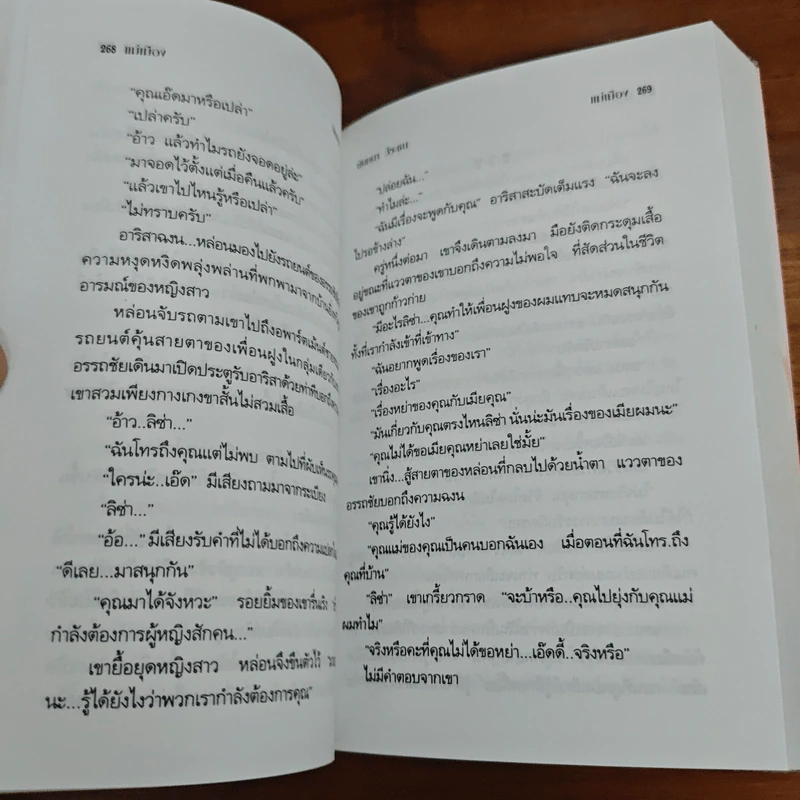 268 แม่เมือง
"คุณเอ๊ดมาหรือเปล่า"
"เปล่าครับ"
"อ้าว แล้วทำไมรถยังจอดอยู่ล่ะ"
"มาจอดไว้ตั้งแต่เมื่อคืนแล้วครับ"
"แล้วเขาไปไหนรู้หรือเปล่า"
"ไม่ทราบครับ"
อาริสาฉงน...หล่อนมองไปยังรถยนต์ของ
ความหงุดหงิดพลุ่งพล่านที่พกพามาจาก
อารมณ์ของหญิงสาว
หล่อนจับรถตามเขาไปถึงอพาร์ตเม้นต์
รถยนต์คุ้นสายตาของเพื่อนฝูงในกลุ่มเดียว
อรรถชัยเดินมาเปิดประตูรับอาริสาด้วยท่าที
เขาสวมเพียงกางเกงขาสั้นไม่สวมเสื้อ
"อ้าว..ลิซ่า..."
"ฉันโทรถึงคุณแต่ไม่พบ ตามไปที่ผับ
"ใครน่ะ..เอ๊ด" มีเสียงถามมาจากระเบียง
"ลิซ่า..."
"อ้อ..." มีเสียงรับคำที่ไม่ได้บอกถึงความ
"ดีเลย...มาสนุกกัน"
"คุณมาได้จังหวะ" รอยยิ้มของเขา
กำลังต้องการผู้หญิงสักคน..."
เขายื้อยุดหญิงสาว หล่อนจึงขืนตัวไว้
นะ...รู้ได้ยังไงว่าพวกเรากำลังต้องการคุณ"
แม่เมือง 269
"ปล่อยฉัน..."
"ทำไมล่ะ..."
"ฉันมีเรื่องจะพูดกับคุณ" อาริสาสะบัดเต็มแรง "ฉันจะลง
ไปรอข้างล่าง"
ครู่หนึ่งต่อมา เขาจึงเดินตามลงมา มือยังติดกระดุมเสื้อ
อยู่ขณะที่แววตาของเขาบอกถึงความไม่พอใจ ที่สัดส่วนในชีวิต
ของเขาถูกก้าวก่าย
"มีอะไรลิซ่า...คุณทำให้เพื่อนฝูงของผมแทบจะหมดสนุกกัน
ทั้งที่เรากำลังเข้าที่เข้าทาง"
"ฉันอยากพูดเรื่องของเรา"
"เรื่องอะไร"
"เรื่องหย่าของคุณกับเมียคุณ"
"มันเกี่ยวกับคุณตรงไหนลิซ่า นั่นน่ะมันเรื่องของเมียผมนะ"
"คุณไม่ได้ขอเมียคุณหย่าเลยใช่มั้ย"
เขานิ่ง...สู้สายตาของหล่อนที่กลบไปด้วยน้ำตา แววตาของ
อรรถชัยบอกถึงความฉงน
"คุณรู้ได้ยังไง"
"คุณแม่ของคุณเป็นคนบอกฉันเอง เมื่อตอนที่ฉันโทร.ถึง
คุณที่บ้าน"
"ลิซ่า" เขาเกรี้ยวกราด "จะบ้าหรือ..คุณไปยุ่งกับคุณแม่
ผมทำไม"
"จริงหรือคะที่คุณไม่ได้ขอหย่า...เอ๊ดดี้..จริงหรือ"
ไม่มีคำตอบจากเขา